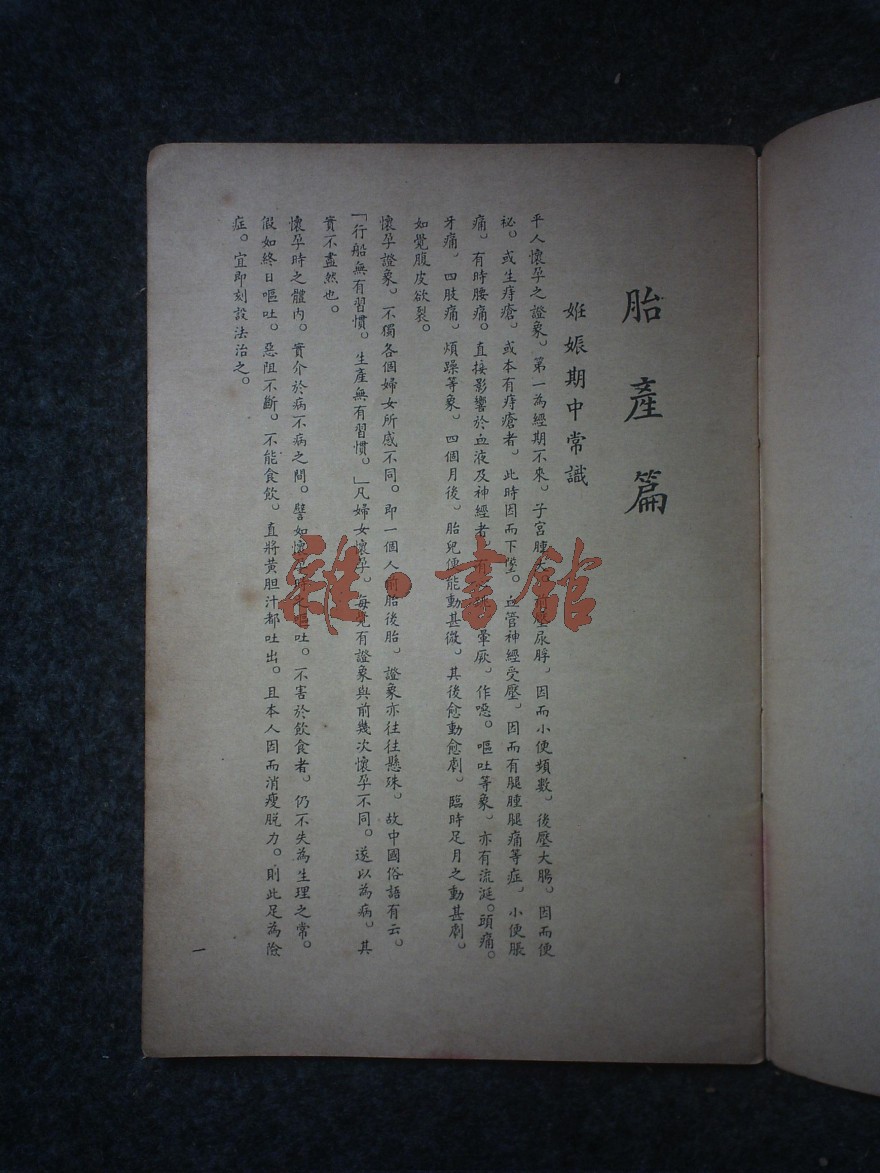 胎產篇
姙娠期中常識
平人懷孕之證象。第一為經期不來。子宮腫大。壓尿脬。因而小便頻數。後壓大腸。因而便
祕。或生痔瘡。或本有痔瘡者。此時因而下墜。血管神經受壓。因而有腿腫腿痛等症。小便脹
痛。有時腰痛。直接影響於血液及神經者。暈厥。作噁。嘔吐等象。亦有流涎。頭痛。
牙痛。四肢痛。煩躁等象。四個月後。胎兒便能動甚微。其後愈動愈劇。臨時足月之動甚劇。
如覺腹皮欲裂。
懷孕證象。不獨各個婦女所感不同。即一個人前胎後胎。證象亦往往懸殊。故中國俗語有云。
「行船無有習慣。生產無有習慣。」凡婦女懷孕。每覺有證象與前幾次懷孕不同。遂以為病。其
實不盡然也。
懷孕時之體內。實介於病不病之間。譬如懷孕時之嘔吐。不害於飲食者。仍不失為生理之常。
假如終日嘔吐。惡阻不斷。不能食飲。直將黃胆汁都吐出。且本人因而消瘦脫力。則此足為險
症。宜即刻設法治之。
一
雜·書館